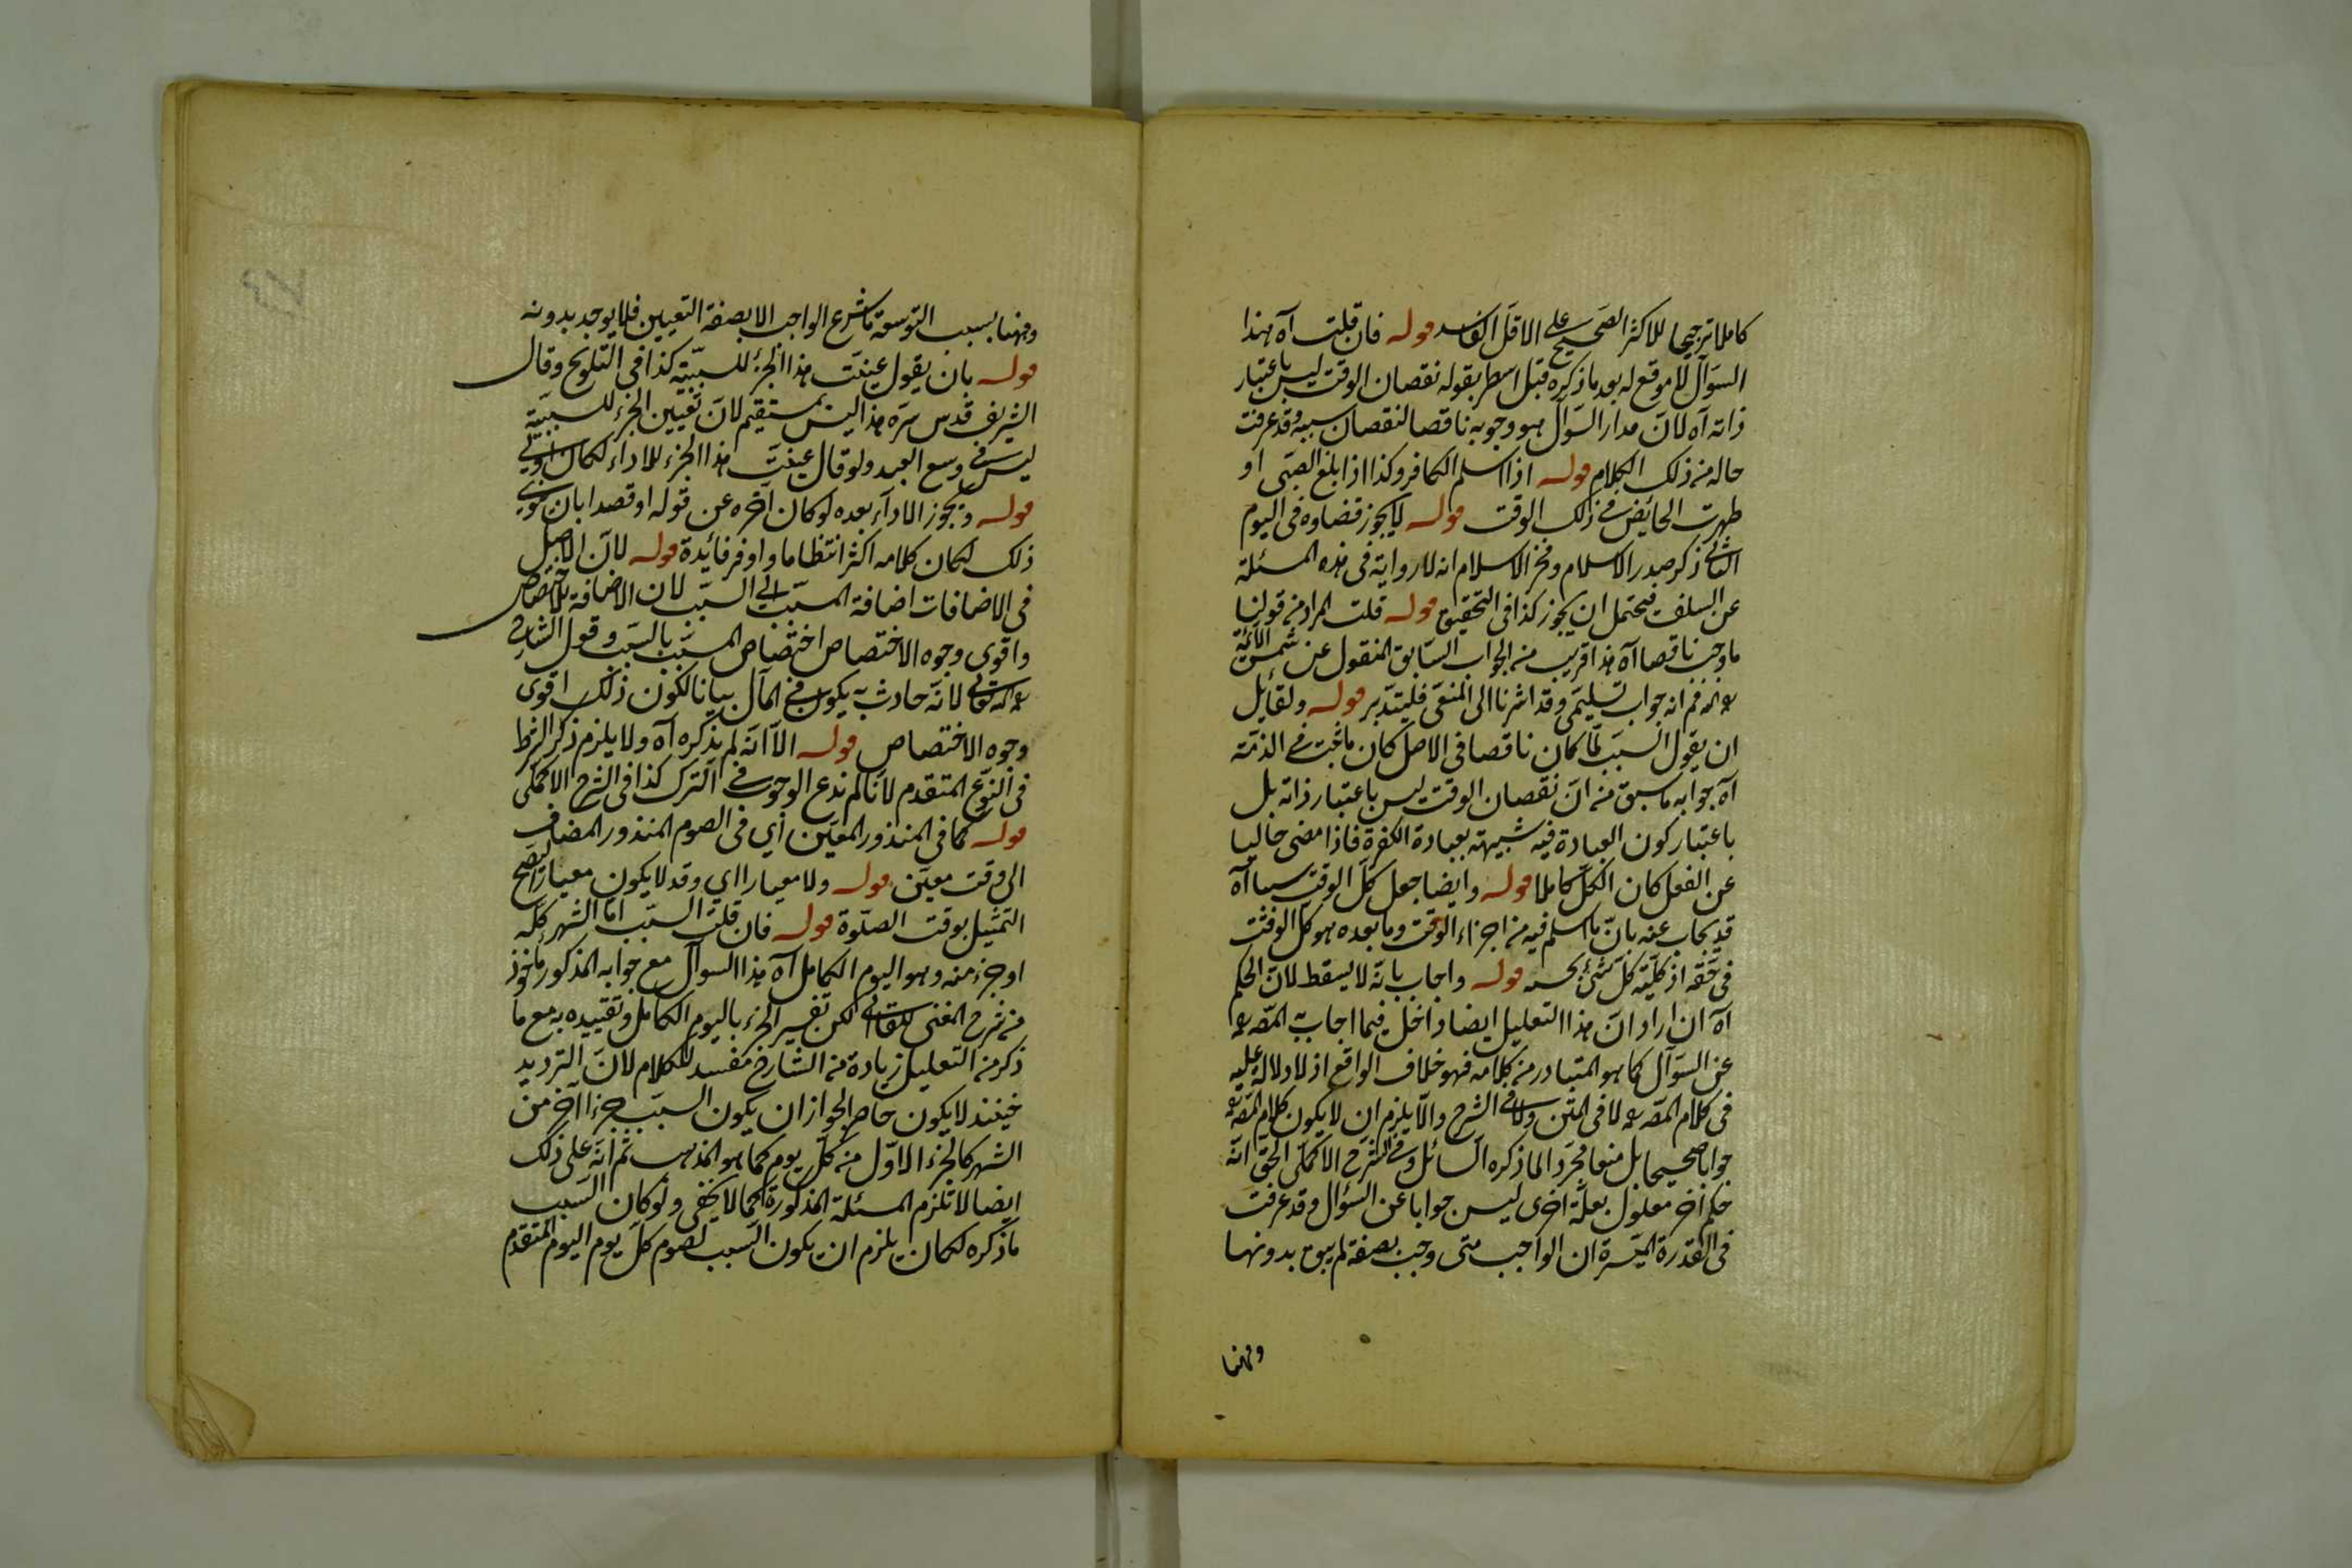 كاملا ترجيحا للاكثر الصحيح على الاقل الفاسد قوله فان قلت آه هذا
السؤال لا موقع له بعد ما ذكره قبل اسطر بقوله نقصان الوقت ليس باعتبار
ذاته آه لان مدار السؤال هو وجوبه ناقصا لنقصان سببه وقد عرفت
حاله من ذلك الكلام قوله اذا اسلم الكافر وكذا اذا بلغ الصبي او
طهرت الحائض في ذلك الوقت قوله لا يجوز قضاوه في اليوم
الثاني ذكر صدر الاسلام وفخر الاسلام انه لا رواية في هذه المسئلة
عن السلف فيحتمل ان يجوز كذا في التحقيق قوله قلت المراد من قولنا
ما وجب ناقصا آه هذا قريب من الجواب السابق المنقول عن شمس الائمة
فم انه جواب تسليمي وقد اشرنا الى المنعي فليتدبر قوله ولقائل
ان يقول السبب لما كان ناقصا في الاصل كان ما ثبت في الذمة
آه جوابه ما سبق من ان نقصان الوقت ليس باعتبار ذاته بل
باعتبار كون العبادة فيه شبيهة بعبادة الكفرة فاذا مضى خاليا
عن الفعل كان الكل كاملا قوله وايضا جعل كل الوقت سببا آه
قد يجاب عنه بان ما اسلم فيه من اجزاء الوقت وما بعده هو كل الوقت
في حقه اذ كلية كل شئ بحسبه قوله واجاب بانه لا يسقط لان الحكم
آه ان اراد ان هذا التعليل ايضا داخل فيما اجاب به المص رحمه
عن السؤال كما هو المتبادر من كلامه فهو خلاف الواقع اذ لا دلالة عليه
في كلام المص رحمه لا في المتن ولا في الشرح والا يلزم ان لا يكون كلام المص رحمه
جوابا صحيحا بل منعا مجردا لما ذكره السائل وفي الشرح الاكملي الحق انه
حكم آخر معلول بعلة اخرى ليس جوابا عن السؤال وقد عرفت
في القدرة الميسرة ان الواجب متى وجب بصفة لم يبق بدونها
وههنا
وههنا بسبب التوسعة ما شرع الواجب الا بصفة التعيين فلا يوجد بدونه
قوله بان يقول عينت هذا الجزء للسببية كذا في التلويح وقال
الشريف قدس سره هذا ليس بمستقيم لان تعيين الجزء للسببية
ليس في وسع العبد ولو قال عينت هذا الجزء للاداء لكان اولى
قوله ويجوز الاداء بعده لو كان آخره عن قوله او قصدا بان نوى
ذلك لكان كلامه اكثر انتظاما واوفر فائدة قوله لان الاصل
في الاضافات اضافة المسبب الى السبب لان الاضافة للاختصاص
واقوى وجوه الاختصاص اختصاص المسبب بالسبب وقول الشارح
لانه حادث به يكون في المآل بيانا لكون ذلك اقوى
وجوه الاختصاص قوله الا انه لم يذكره آه ولا يلزم ذكر الشرط
في النوع المتقدم لانا لم ندع الوجوب في الترك كذا في الشرح الاكملي
قوله كما في المنذور المعين اي في الصوم المنذور المضاف
الى وقت معين قوله ولا معيارا اي وقد لا يكون معيارا ليصح
التمثيل بوقت الصلوة قوله فان قلت السبب اما الشهر كله
او جزء منه وهو اليوم الكامل آه هذا السوال مع جوابه المذكور ماخوذ
من شرح المغني للقاآني لكن تفسير الجزء باليوم الكامل وتقييده به مع ما
ذكر من التعليل زيادة من الشارح مفسد للكلام لان الترديد
حينئذ لا يكون حاصرا لجواز ان يكون السبب جزءا آخر من
الشهر كالجزء الاول من كل يوم كما هو المذهب ثم انه على ذلك
ايضا لا تلزم المسئلة المذكورة كما لا يخفى ولو كان السبب
ما ذكره لكان يلزم ان يكون السبب لصوم كل يوم اليوم المتقدم